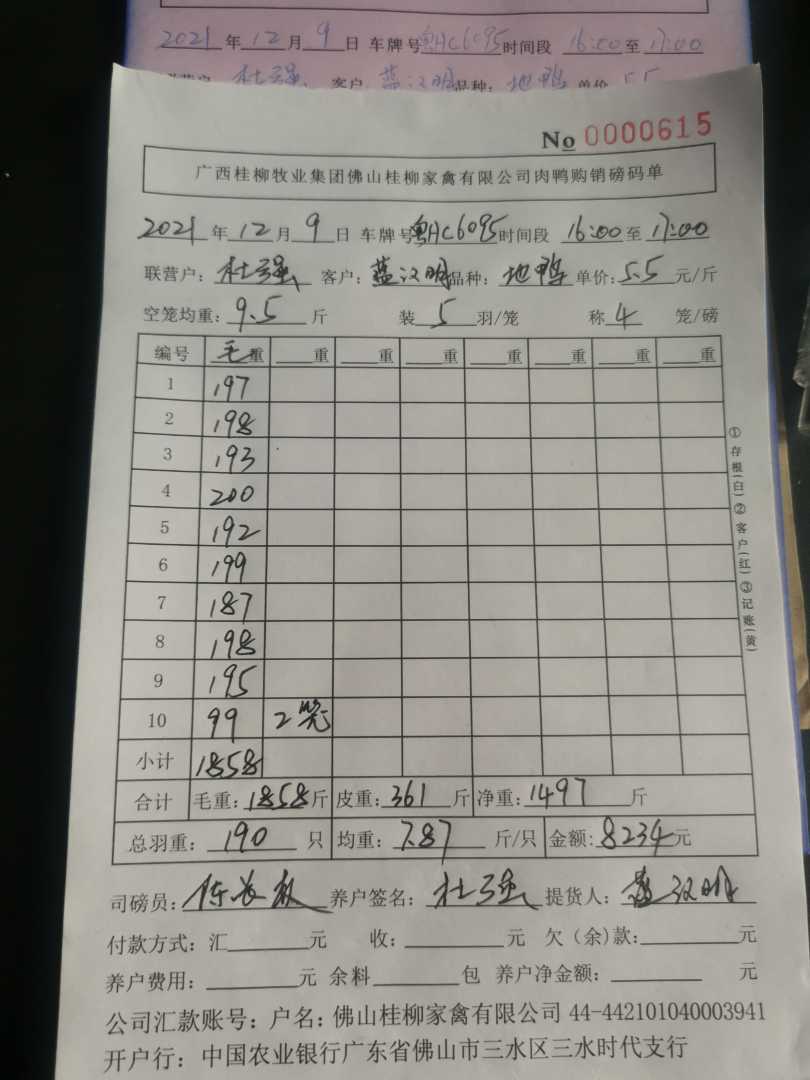 2021年12月9日 车牌号粤HC6095时间段16:00至17:00
杜强 客户:蓝汉明品种:地鸭 单价5.5
No 0000615
广西桂柳牧业集团佛山桂柳家禽有限公司肉鸭购销磅码单
2021年12月9日 车牌号粤HC6095时间段16:00至17:00
联营户:杜强 客户:蓝汉明品种:地鸭 单价:5.5元/斤
空笼均重:9.5斤 装5羽/笼 称4笼/磅
编号 毛重 重 重 重 重 重 重 重
1 197
2 198
3 193
4 200
5 192
6 199
7 187
8 198
9 195
10 99 2笼
小计 1858
合计 毛重:1858斤 皮重:361斤 净重:1497斤
总羽重:190只 均重:7.87斤/只 金额:8234元
司磅员: 养户签名:杜强 提货人:蓝汉明
付款方式:汇元 收:元 欠(余)款:元
养户费用:元 余料包 养户净金额:元
公司汇款账号:户名:佛山桂柳家禽有限公司 44-442101040003941
开户行:中国农业银行广东省佛山市三水区三水时代支行
①存根(白)②客户(红)③记账(黄)